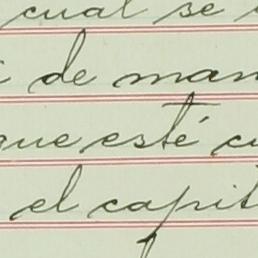 cual se
de man
que esté cu
el capit